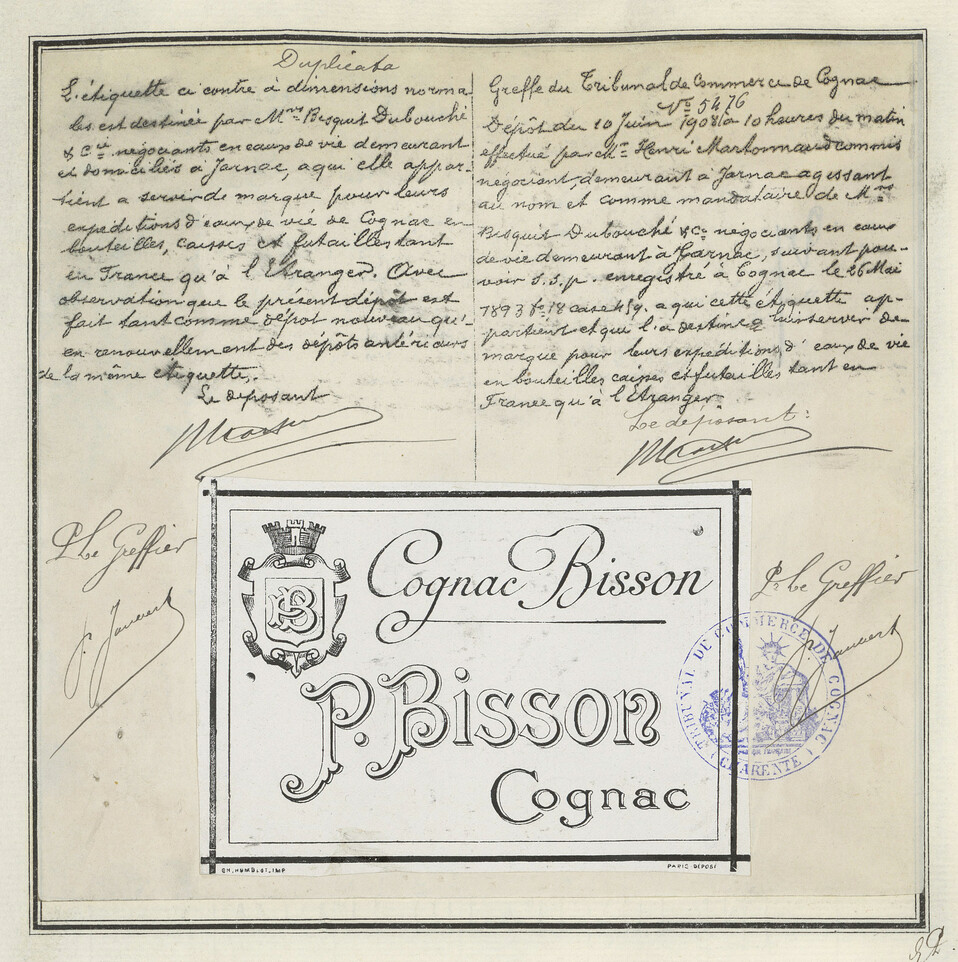 Duplicata
L'étiquette ci contre à dimensions norma-
les est destinée par M.rs Bisquit Dubouché
& C.ie négociants en eaux de vie demeurant
et domiciliés à Jarnac, a qui elle appar-
tient a servir de marque pour leurs
expéditions d'eaux de vie de Cognac en
bouteilles, caisses et futailles tant
en France qu'à l'Etranger. Avec
observation que le présent dépôt est
fait tant comme dépôt nouveau qu'
en renouvellement des dépôts antérieurs
de la même étiquette.
Le déposant
Greffe du Tribunal de Commerce de Cognac
N.o 5476
Dépôt du 10 Juin 1908 à 10 heures du matin
effectué par M.r Henri Martonnaud commis
négociant, demeurant à Jarnac agissant
au nom et comme mandataire de M.rs
Bisquit Dubouché & C.o négociants en eaux
de vie demeurant à Jarnac, suivant pou-
voir S.S.p. enregistré à Cognac le 26 Mai
1893 f.o 18 case 459. a qui cette étiquette ap-
partient et qui l'a destinée à lui servir de
marque pour leurs expéditions d'eaux de vie
en bouteilles caisses et futailles tant en
France qu'à l'Etranger
Le déposant:
P. Le Greffier
P. Le Greffier
PB
Cognac Bisson
P. Bisson
Cognac
CH. HUMBLOT, IMP
PARIS-DÉPOSÉ
TRIBUNAL DE COMMERCE DE COGNAC
(CHARENTE)